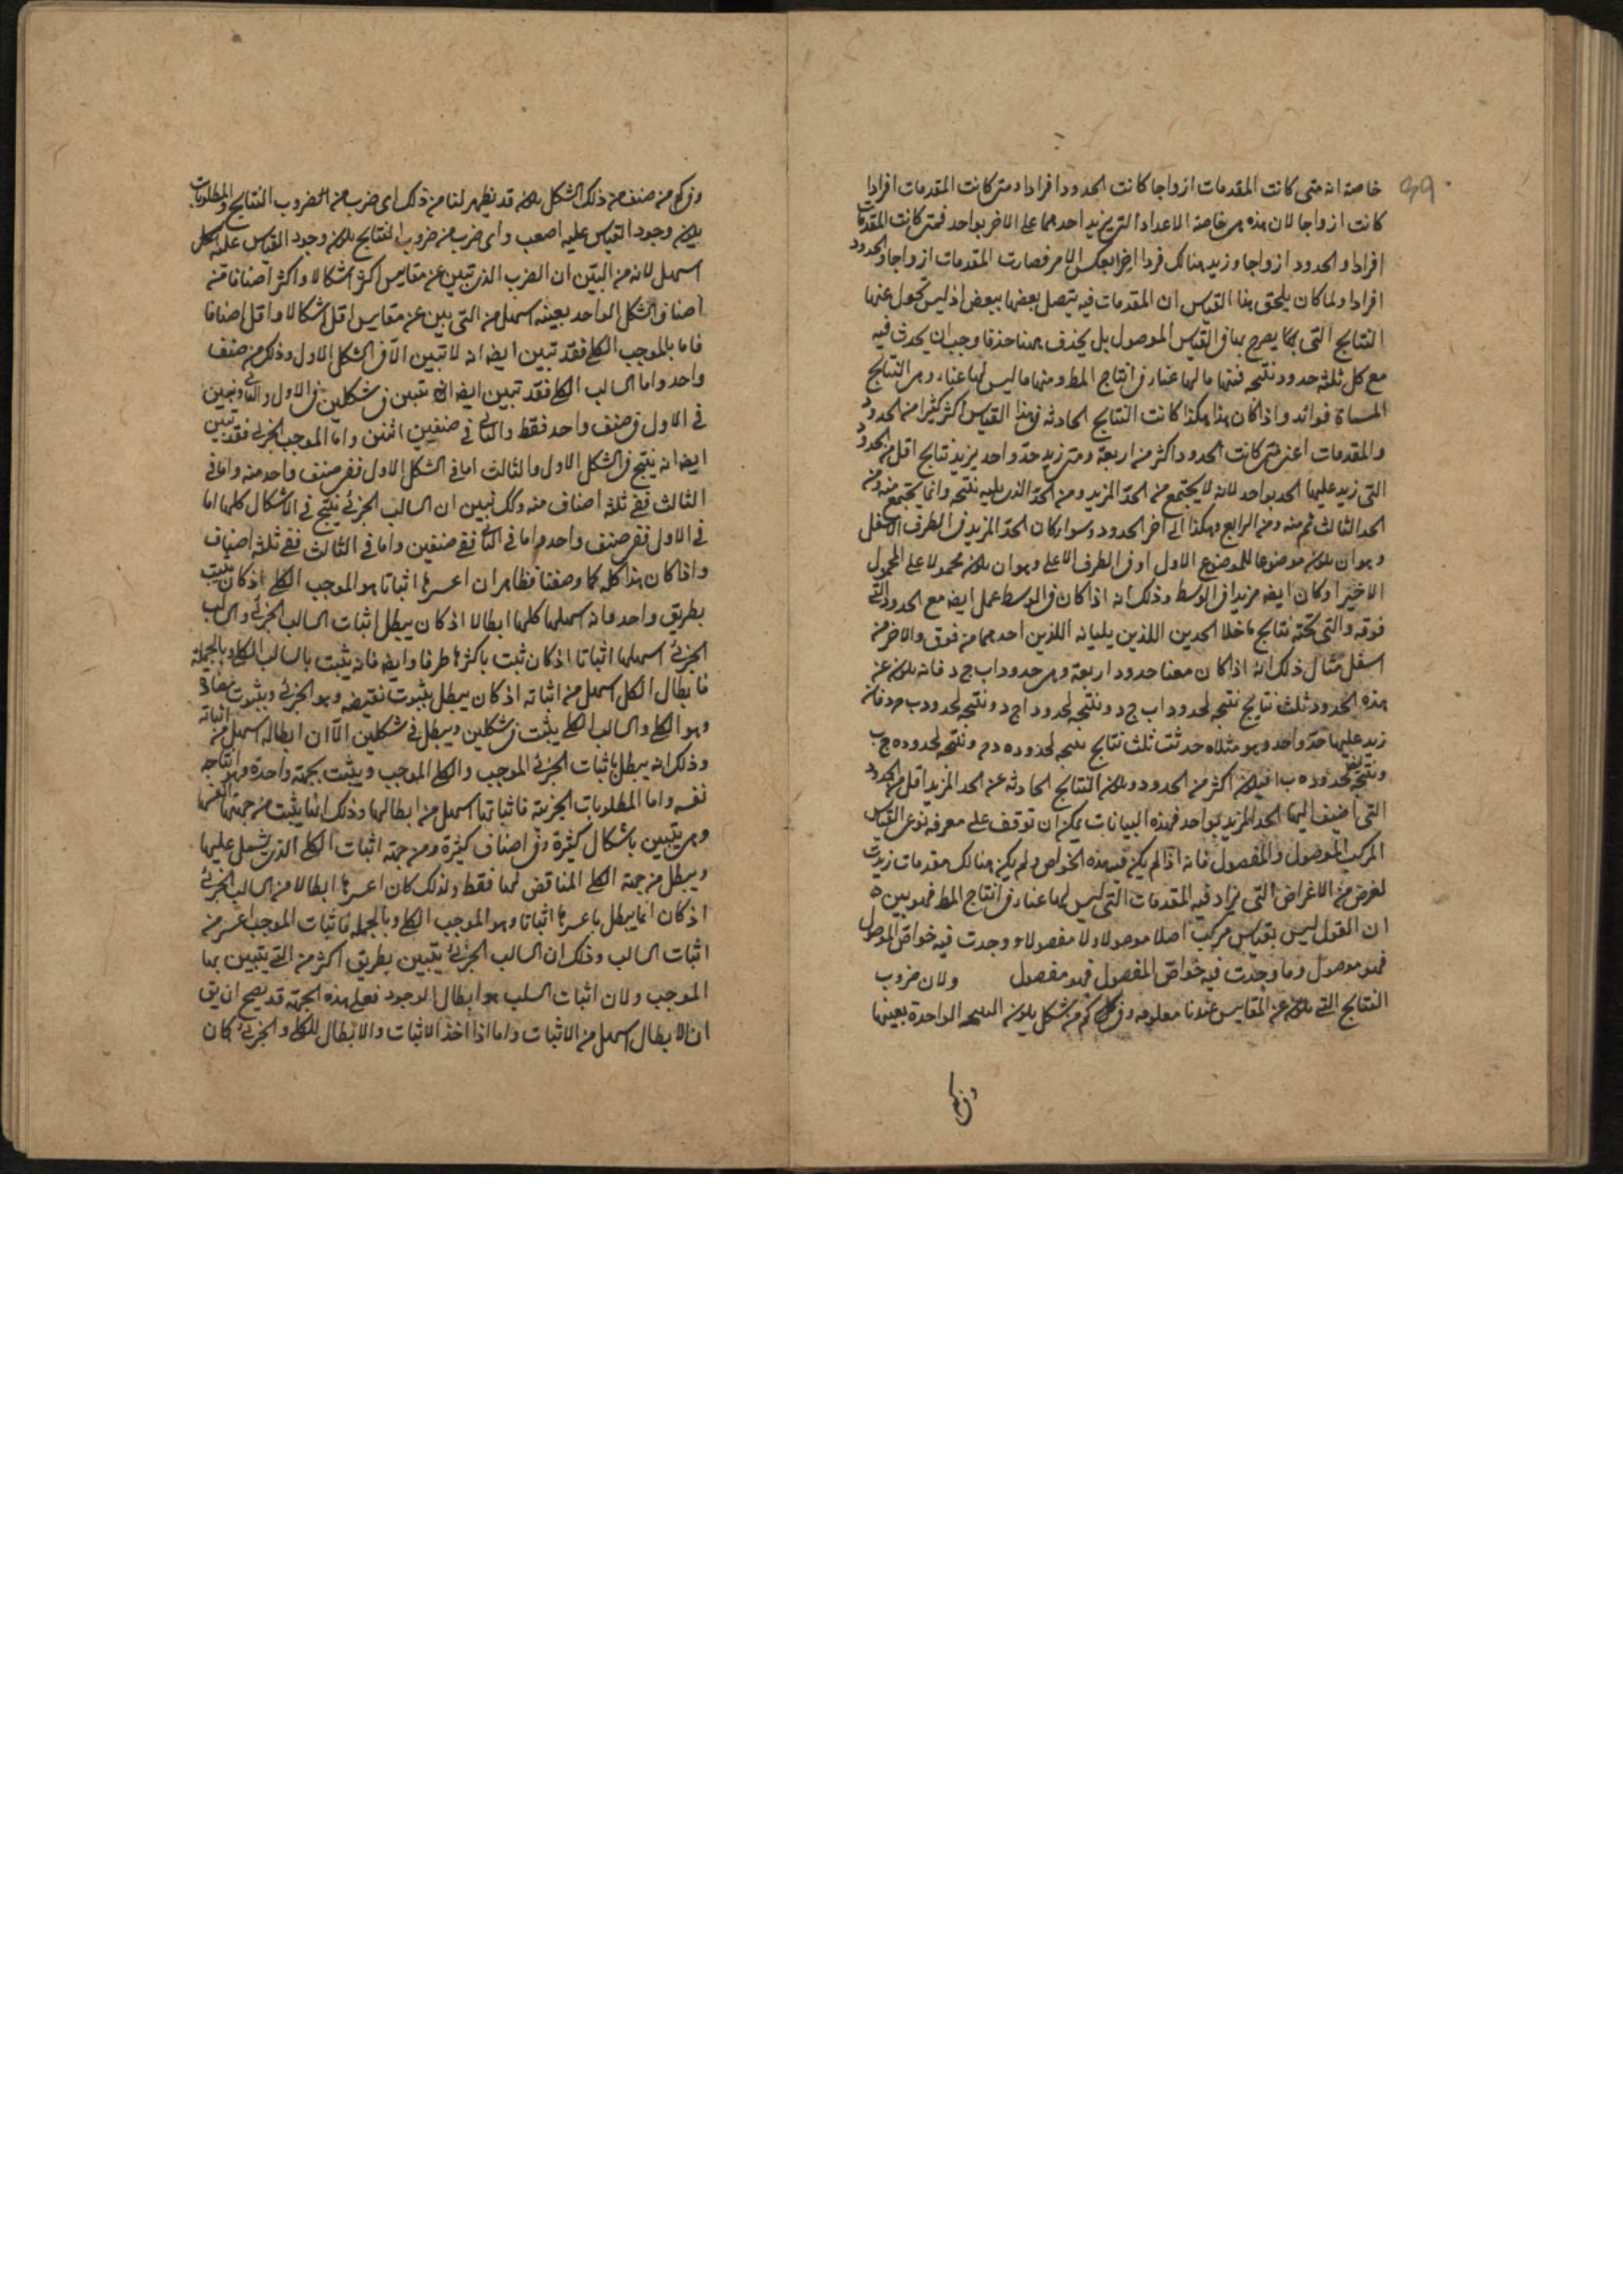 خاصة انه متى كانت المقدمات ازواجا كانت الحدود افرادا ومتى كانت المقدمات افرادا
كانت ازواجا لان هذه هى خاصة الاعداد التى يزيد احدهما على الاخر بواحد فمتى كانت المقدمات
افرادا والحدود ازواجا وزيد هنالك فردا اخر انعكس الامر فصارت المقدمات ازواجا والحدود
افرادا ولما كان يلحق هذا القياس ان المقدمات فيه يتصل بعضها ببعض اذ ليس تحول عنها
النتايج التى يصرح بها فى القياس الموصول بل يحذف ههنا حذفا وجب ان يحدث فيه
مع كل ثلثة حدود نتيجه فمنها ما لها غناء فى انتاج المط ومنها ما ليس لها غناء وهى النتايج
المسماة فوائد واذا كان هذا هكذا كانت النتايج الحادثه فى هذا القياس اكثر كثيرا من الحدود
والمقدمات اعنى متى كانت الحدود اكثر من اربعة ومتى زيد حد واحد يزيد نتايج اقل من الحدود
التى زيد عليها الحد بواحد لانه لا يجتمع من الحد المزيد ومن الحد الذى يليه نتيجه وانما يجتمع منه ومن
الحد الثالث ثم منه ومن الرابع وهكذا الى اخر الحدود وسواء كان الحد المزيد فى الطرف الاسفل
وهو ان يكون موضوعا للموضوع الاول او فى الطرف الاعلى وهو ان يكون محمولا على المحمول
الاخير او كان ايضه مزيدا فى الوسط وذلك انه اذا كان فى الوسط عمل ايضه مع الحدود التى
فوقه والتى تحته نتايج ما خلا الحدين اللذين يليانه اللذين احدهما من فوق والاخر من
اسفل مثال ذلك انه اذا كان معنا حدود اربعة وهى حدود اب ج د فانه يكون عن
هذه الحدود ثلث نتايج نتيجه لحدود اب ج د ونتيجه لحدود ا ج د ونتيجه لحدود ب ج د فانه
زيد عليها حد واحد وهو مثلا ه حدثت ثلث نتايج نتيجه لحدود ه د م ونتيجه لحدود ه ج ب
ونتيجه لحدود ه ب ا فيكون اكثر من الحدود ويكون النتايج الحادثه عن الحد المزيد اقل من الحدود
التى اضيف اليها الحد المزيد بواحد فهذه البيانات يمكن ان توقف على معرفة نوعى القياس
المركب الموصول والمفصول فانه اذا لم يكن فيه هذه الخواص ولم يكن هنالك مقدمات زيدت
لغرض من الاغراض التى يزاد فيه المقدمات التى ليس لها غناء فى انتاج المط فهو بين ه
ان القول ليس بقياس مركب اصلا موصولا ولا مفصولا ووجدت فيه خواص الموصول
فهو موصول وما وجدت فيه خواص المفصول فهو مفصول ولان ضروب
النتايج التى يكون عن المقاييس عندنا معلومه وفى كم من شكل يكون النتيجه الواحدة بعينها
وفى كم
وفى كم من صنف من ذلك الشكل يكون قد يظهر لنا من ذلك اى ضرب من الضروب النتايج والمطلوبات
يكون وجود القياس عليه اصعب واى ضرب من ضروب النتايج يكون وجود القياس عليه اسهل
اسهل لانه من البين ان الضرب الذى تبين عن مقاييس اكثر اشكالا واكثر اصنافا من
اصناف الشكل الواحد بعينه اسهل من التى يبين عن مقاييس اقل اشكالا واقل اصنافا
فاما بالموجب الكلى فقد تبين ايضه انه لا تبين الا فى الشكل الاول وذلك من صنف
واحد واما السالب الكلى فقد تبين ايضه انه تبين فى شكلين فى الاول والثانى وتبين
فى الاول فى صنف واحد فقط والثانى فى صنفين اثنين واما الموجب الجزئى فقد تبين
ايضه انه ينتج فى الشكل الاول والثالث اما فى الشكل الاول ففى صنف واحد منه واما فى
الثالث ففى ثلثه اصناف منه وكك تبين ان السالب الجزئى ينتج فى الاشكال كلها اما
فى الاول ففى صنف واحد واما فى الثانى ففى صنفين واما فى الثالث ففى ثلثه اصناف
واذا كان هذا كله كما وصفنا فظاهر ان اعسرها اثباتا هو الموجب الكلى اذ كان يثبت
بطريق واحد وانه اسهلها كلها ابطالا اذ كان يبطل اثبات السالب الجزئى والسالب
الجزئى اسهلها اثباتا اذ كان ثبت باكثرها طرفا وايضه فانه يثبت بالسالب الكلى وبالجملة
فابطال الكل اسهل من اثباته اذ كان يبطل بثبوت نقيضه وهو الجزئى وبثبوت مضاده
وهو الكلى والسالب الكلى يثبت فى شكلين ويبطل فى شكلين الا ان ابطاله اسهل من اثباته
وذلك انه يبطل باثبات الجزئى الموجب والكلى الموجب ويثبت بجهة واحدة وهو انتاجه
نفسه واما المطلوبات الجزئية فاثباتها اسهل من ابطالها وذلك انما يثبت من جهتها انفسها
وهى تبين باشكال كثيرة وفى اصناف كثيرة ومن جهة اثبات الكلى الذى يشمل عليها
ويبطل من جهة الكلى المناقض لها فقط ولذلك كان اعسرها ابطالا من السالب الجزئى
اذ كان انما يبطل باعسرها اثباتا وهو الموجب الكلى وبالجمله فاثبات الموجب اعسر من
اثبات السالب وذلك ان السالب الجزئى يتبين بطريق اكثر من التى يتبين بها
الموجب ولان اثبات السلب هو ابطال الوجود فعلى هذه الجهة قد يصح ان يق
ان الابطال اسهل من الاثبات واما اذا اخذ الاثبات والابطال للكلى والجزئى كان